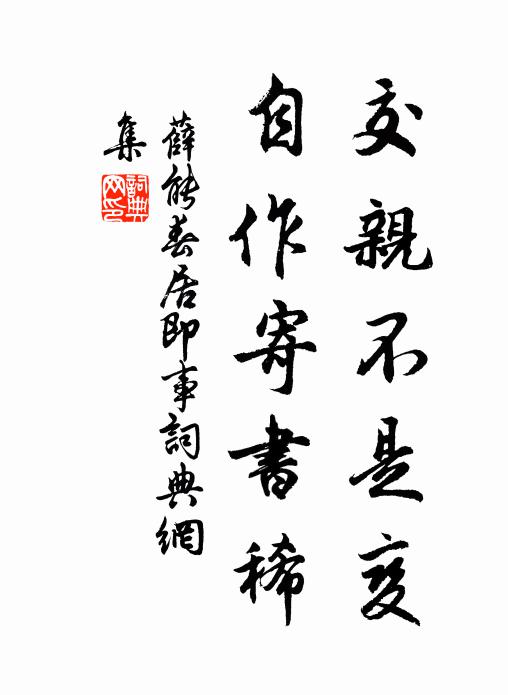 交親不是變
自作寄書稀
薛能春居即事詞典網
集
詞典
网印